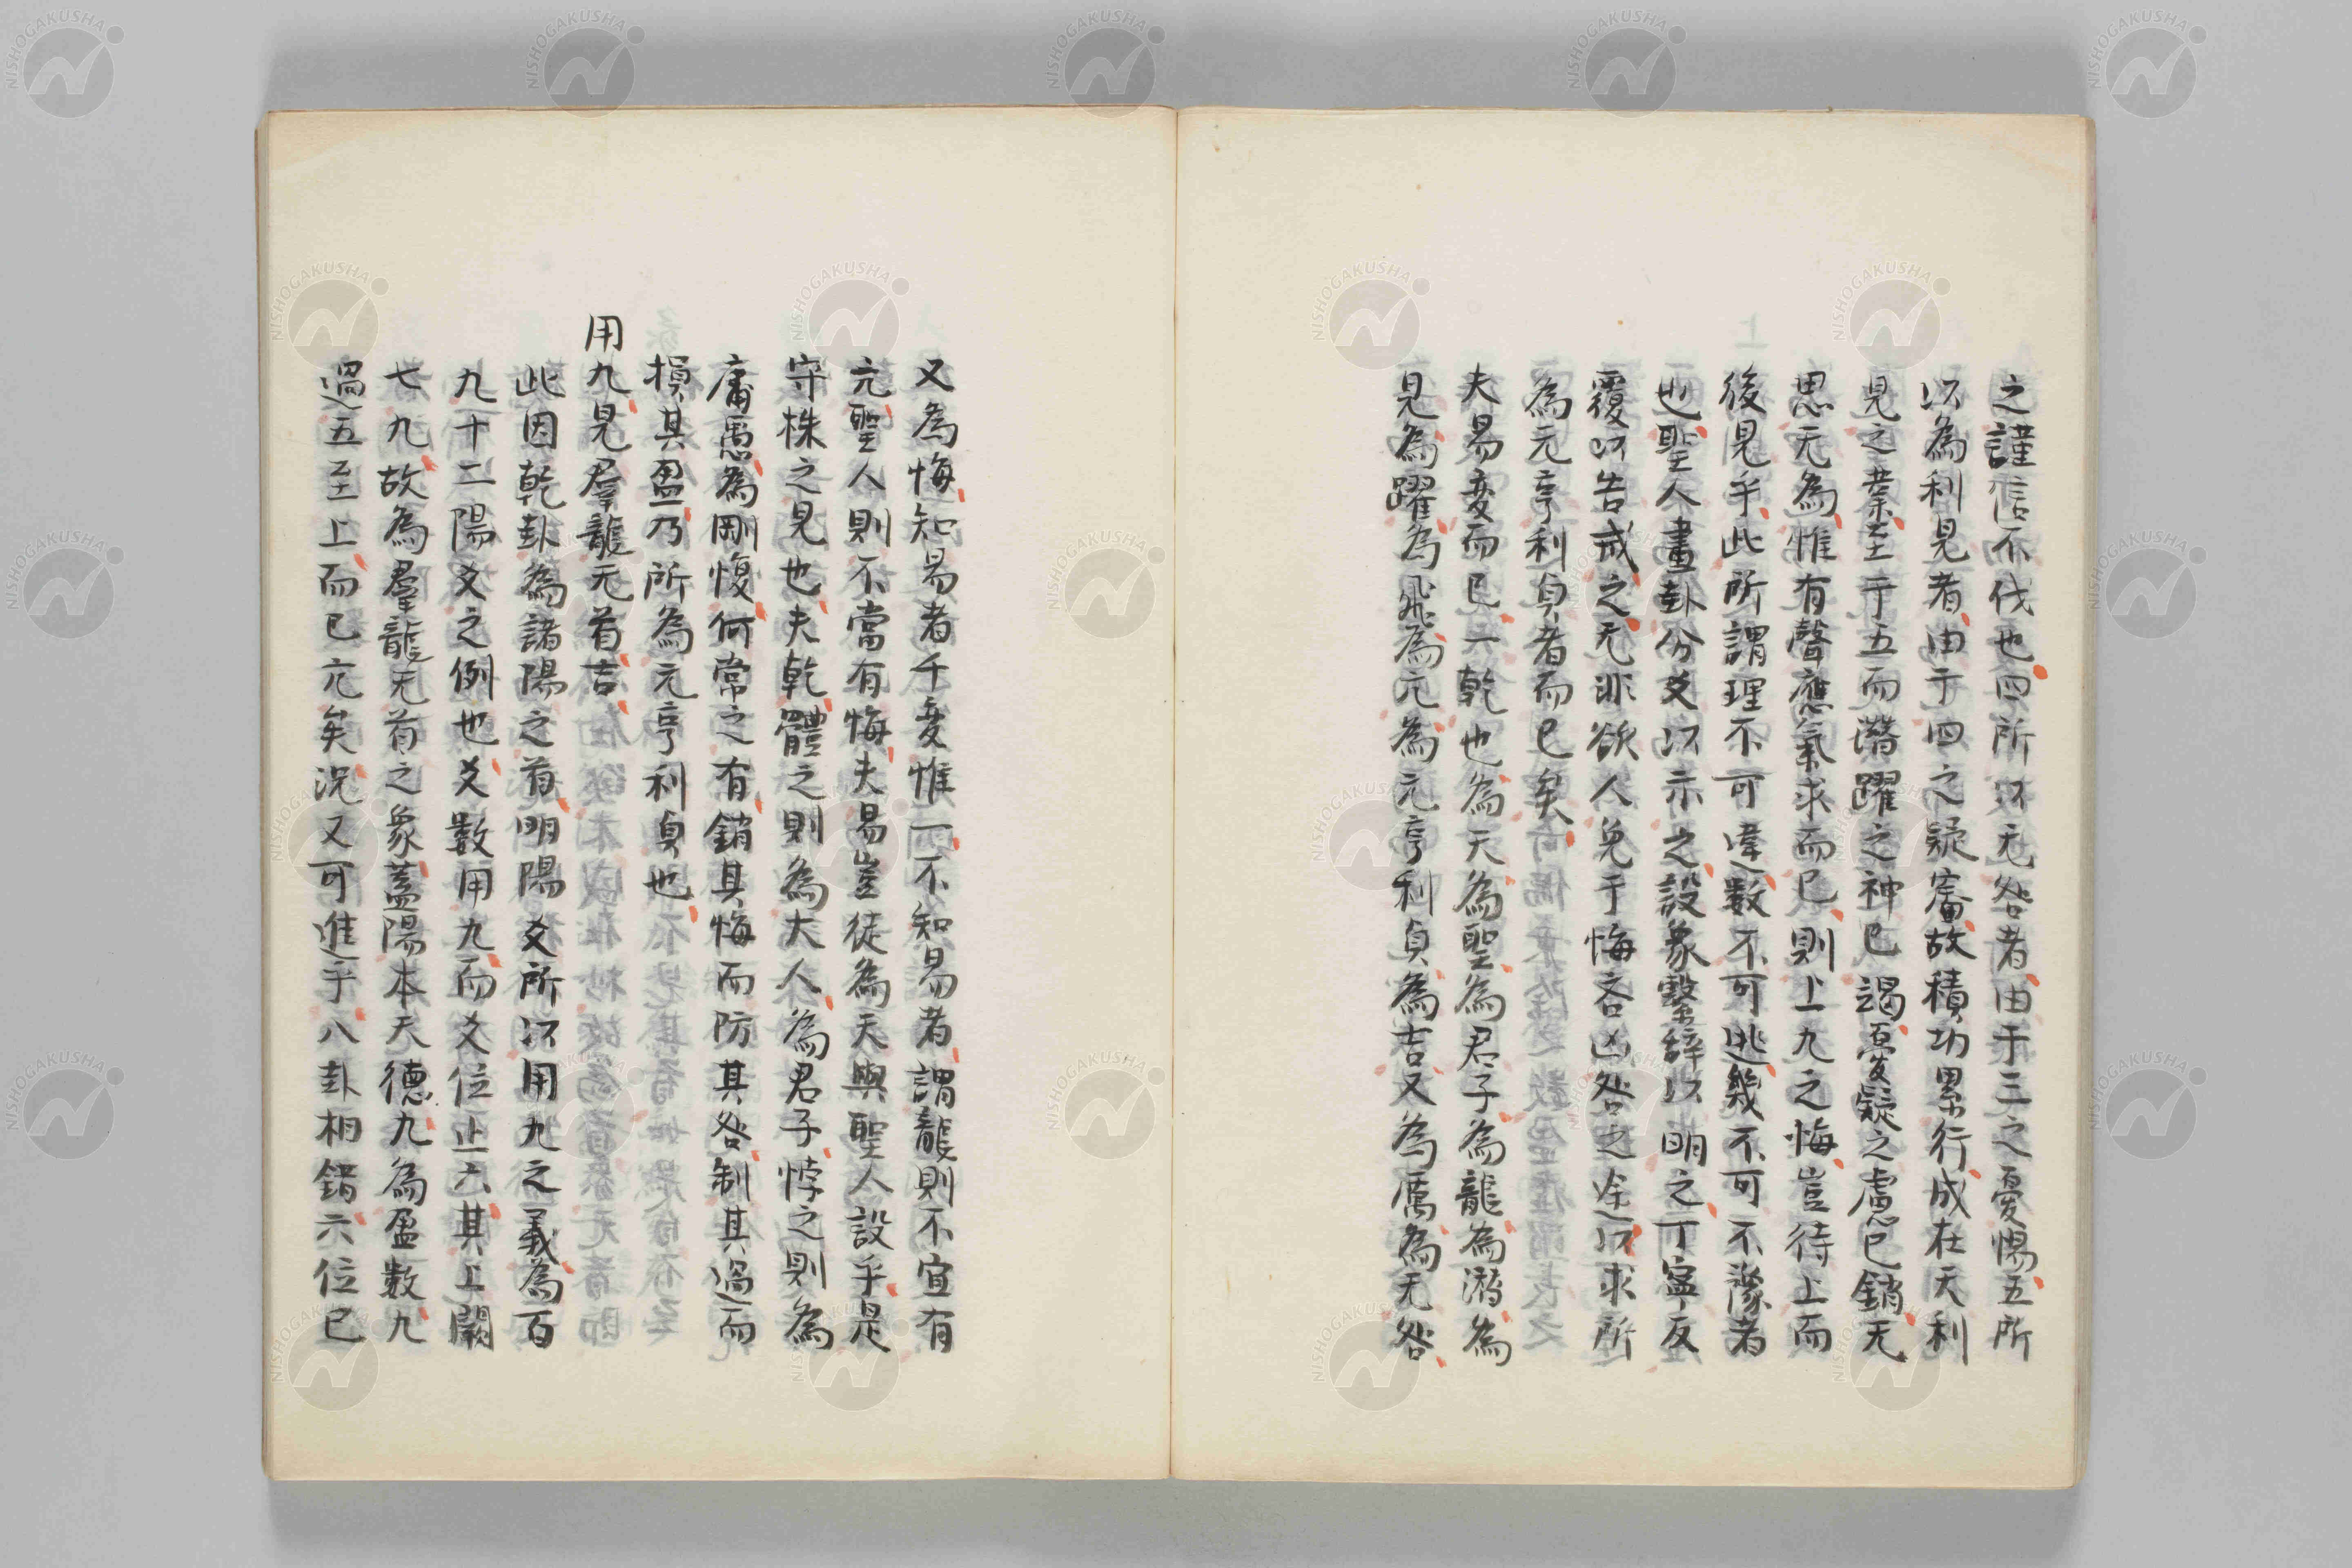 之謹信不伐也四所以无咎者由于三之憂惕五所
以為利見者由于四之疑審故積功累行成在天利
見之業至于五而潛躍之神已謁憂疑之慮已銷无
思无為惟有聲應氣求而已則上九之悔豈待上而
後見乎此所謂理不可違數不可逃幾不可不豫者
也聖人畫卦分爻以示之設象繫辭以明之丁寧反
覆以告戒之无非欲人免于悔吝凶咎之途以求所
為元亨利貞者而已矣
夫易変而已一乾也為天為聖為君子為龍為潛為
見為躍為飛為亢為元亨利貞為吉又為厲為无咎
又為悔知易者千変惟一不知易者謂龍則不宜有
亢聖人則不當有悔夫易豈徒為天與聖人設乎是
守株之見也夫乾體之則為大人為君子悖之則為
庸愚為剛愎何常之有銷其悔而防其咎制其過而
損其盈乃所為元亨利貞也
用九見羣龍无首吉
此因乾卦為諸陽之首明陽爻所以用九之義為百
九十二陽爻之例也爻數用九而爻位止六其上闕
七九故為羣龍无首之象蓋陽本天德九為盈數九
過五至上而已亢矣況又可進乎八卦相錯六位已
NISHOGAKUSHA